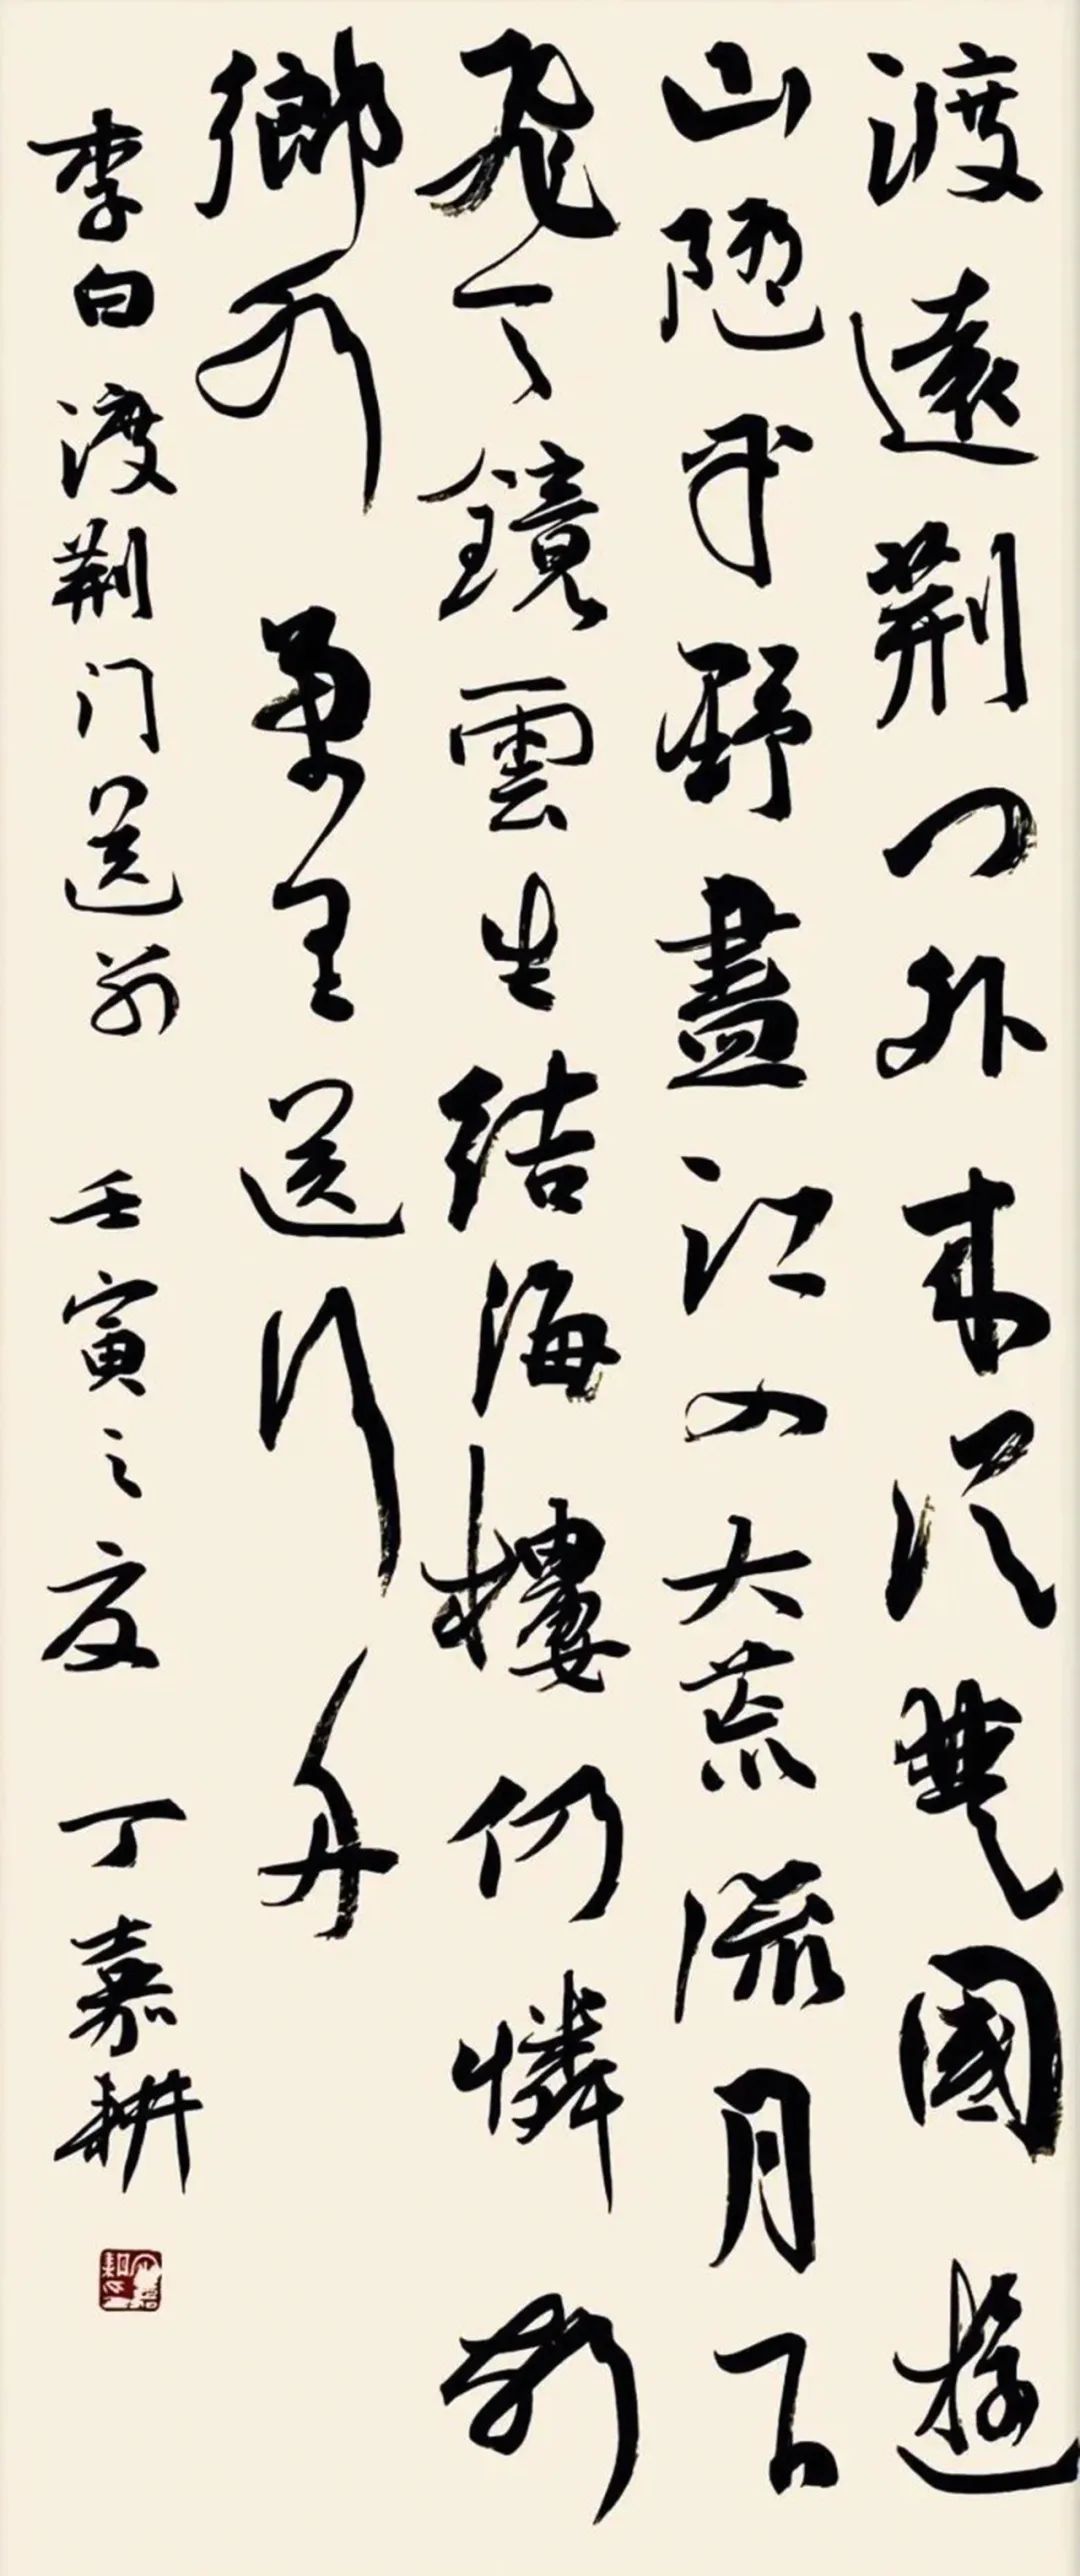 渡遠荆门外来從楚國遊
山随平野盡江入大荒流月下
飛天鏡雲生结海樓仍憐故
鄉水萬里送行舟
李白渡荆门送别 壬寅之夏 丁嘉耕